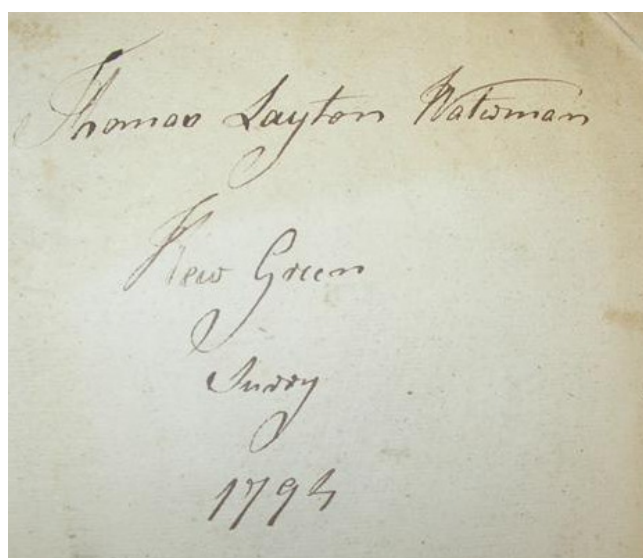 Thomas Layton Waterman
Kew Green
Surry
1794